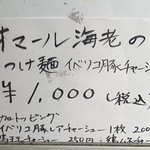 オマール海老の
つけ麺 イベリコ豚チャーシ
¥1,000 (税込
加トッピング
イベリコ豚レアチャーシュー 1枚 200
チャーシュー 250円